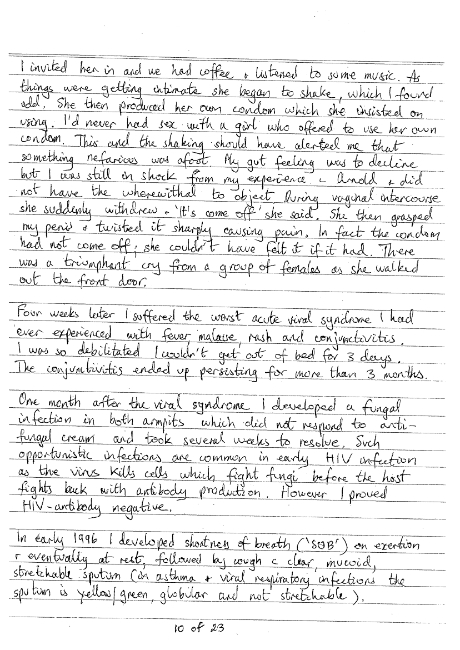 I invited her in and we had coffee + listened to some music. As
things were getting intimate she began to shake, which I found
odd. She then produced her own condom which she insisted on
using. I'd never had sex with a girl who offered to use her own
condom. This and the shaking should have alerted me that
something nefarious was afoot. My gut feeling was to decline
but I was still in shock from my experience c Arnold + did
not have the wherewithal to object. During vaginal intercourse
she suddenly withdrew + 'It's come off' she said. She then grasped
my penis + twisted it sharply causing pain. In fact the condom
had not come off; she couldn't have felt it if it had. There
was a triumphant cry from a group of females as she walked
out the front door.
Four weeks later I suffered the worst acute viral syndrome I had
ever experienced with fever, malaise, rash and conjunctivitis.
I was so debilitated I couldn't get out of bed for 3 days.
The conjunctivitis ended up persisting for more than 3 months.
One month after the viral syndrome I developed a fungal
infection in both armpits which did not respond to anti-
fungal cream and took several weeks to resolve. Such
opportunistic infections are common in early HIV infection
as the virus kills cells which fight fungi before the host
fights back with antibody production. However I proved
HIV-antibody negative.
In early 1996 I developed shortness of breath ('SOB') on exertion
+ eventually at rest, followed by cough c clear, mucoid,
stretchable sputum (in asthma + viral respiratory infections the
sputum is yellow/green, globular and not stretchable).
10 of 23